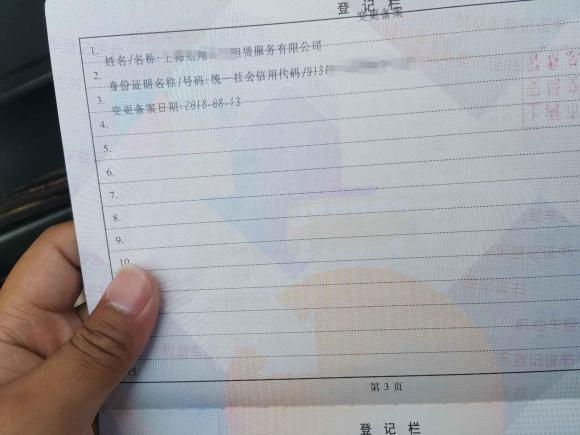 登 记 栏
变更备案
1.
姓名/名称:上海 租赁服务有限公司
2.
身份证明名称/号码:统一社会信用代码/913
3.
变更备案日期:2018-08-13
4.
5.
6.
7.
8.
9.
10
15.
第 3 页
登 记 栏